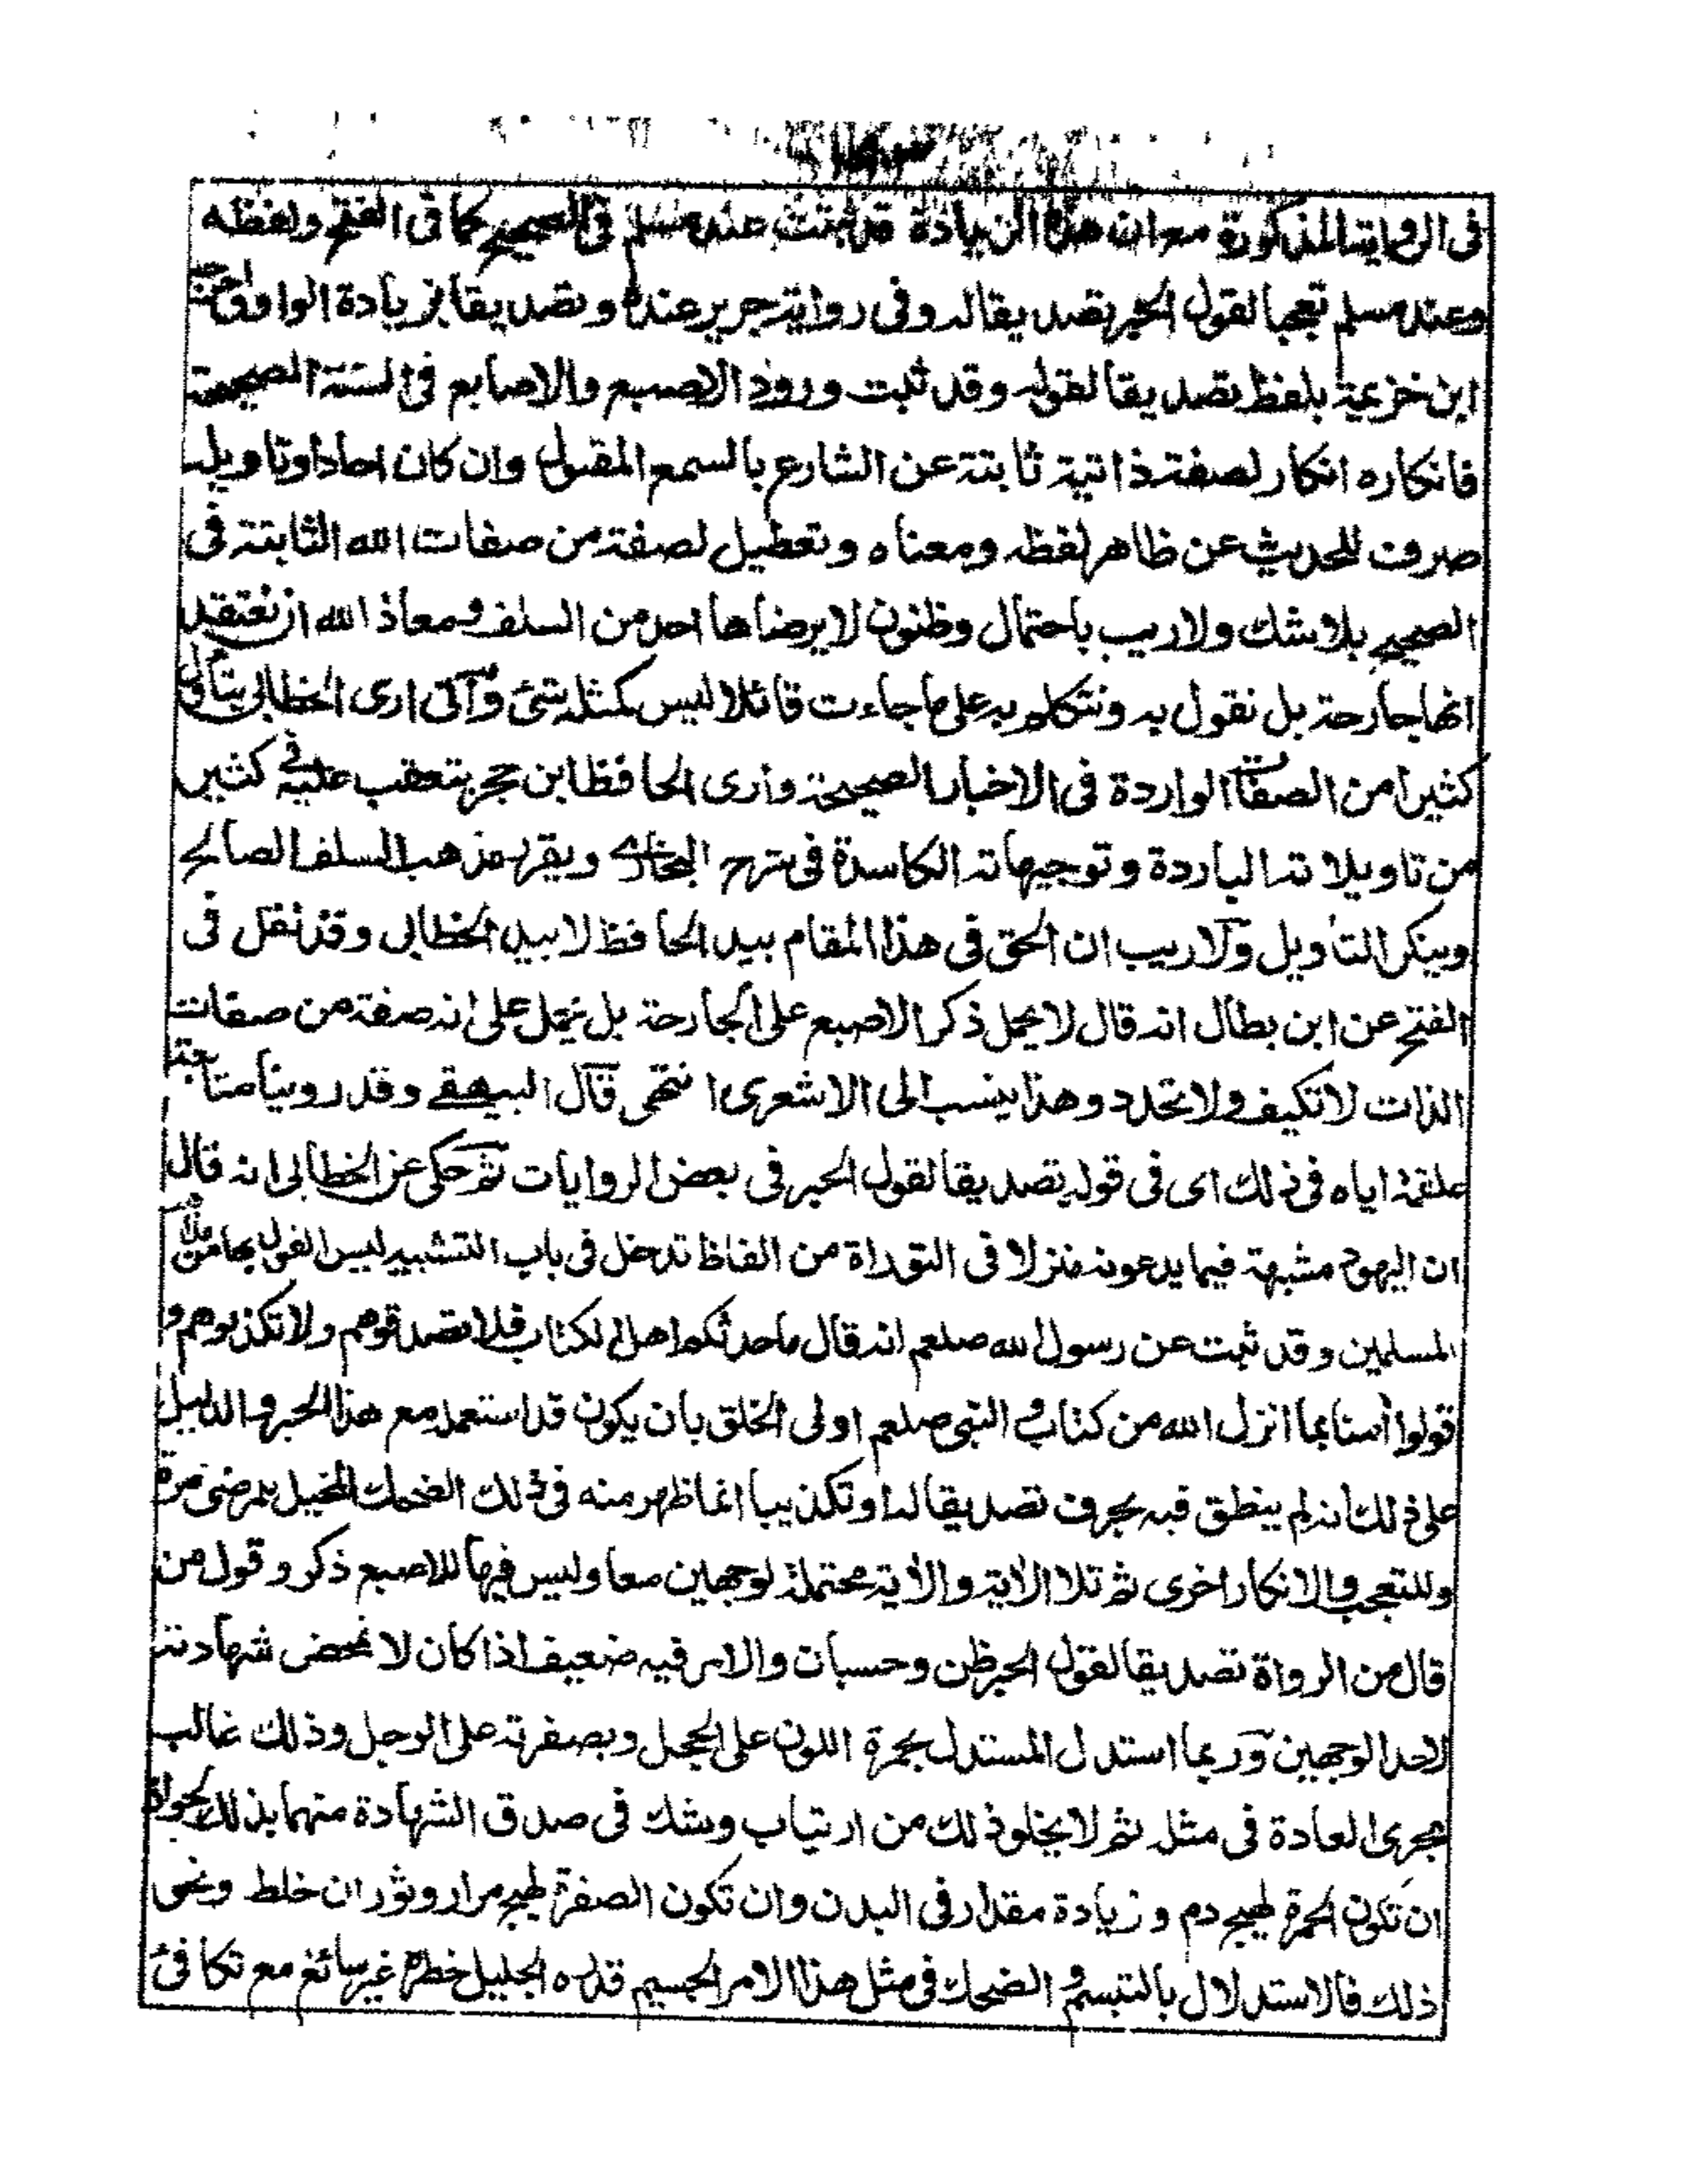 فى الرواية المذكورة مع ان هذه الزيادة قد ثبتت عند مسلم فى الصحيح كما فى الفتح ولفظه
وعند مسلم تعجبا لقول الحبر تصديقا له وفى رواية جرير عنده وتصديقا بزيادة الواو واخرجه
ابن خزيمة بلفظ تصديقا لقوله وقد ثبت ورود الاصبع والاصابع فى السنة الصحيحة
فانكاره انكار لصفة ذاتية ثابتة عن الشارع بالسمع المقبول وان كان احادا وتاويله
صرف للحديث عن ظاهر لفظه ومعناه وتعطيل لصفة من صفات الله الثابتة فى
الصحيح بلا شك ولا ريب باحتمال وظنون لا يرضاها احد من السلف ومعاذ الله ان نعتقد
انها جارحة بل نقول به ونتكلم به على ما جاءت قائلا ليس كمثله شئ وآنى ارى الخطابى يتأول
كثيرا من الصفات الواردة فى الاخبار الصحيحة وارى الحافظ ابن حجر يتعقب عليه فى كثير
من تاويلاته الباردة وتوجيهاته الكاسدة فى شرح البخارى ويقرر مذهب السلف الصالح
وينكر التاويل ولا ريب ان الحق فى هذا المقام بيد الحافظ لا بيد الخطابى وقد نقل فى
الفتح عن ابن بطال انه قال لا يحمل ذكر الاصبع على الجارحة بل يحمل على انه صفة من صفات
الذات لا تكيف ولا تحدد وهذا ينسب الى الاشعرى انتهى قال البيهقى وقد روينا متابعة
علقمة اياه فى ذلك اى فى قوله تصديقا لقول الحبر فى بعض الروايات ثم حكى عن الخطابى انه قال
ان اليهود مشبهة فيما يدعونه منزلا فى التوراة من الفاظ تدخل فى باب التشبيه ليس القول بها من مذهب
المسلمين وقد ثبت عن رسول الله صلعم انه قال ما حدثكم اهل الكتاب فلا تصدقوهم ولا تكذبوهم و
قولوا آمنا بما انزل الله من كتاب والنبى صلعم اولى الخلق بان يكون قد استعمله مع هذا الحبر والدليل
على ذلك انه لم ينطق فيه بحرف تصديقا له او تكذيبا انما ظهر منه فى ذلك الضحك المخيل للرضى مرة
وللتعجب والانكار اخرى ثم تلا الاية والاية محتملة لوجهين معا وليس فيها للاصبع ذكر وقول من
قال من الرواة تصديقا لقول الحبر ظن وحسبان والامر فيه ضعيف اذا كان لا تمحض شهادته
لاحد الوجهين وربما استدل المستدل بحمرة اللون على الخجل وبصفرته على الوجل وذلك غالب
مجرى العادة فى مثله ثم لا يخلو ذلك من ارتياب وشك فى صدق الشهادة منهما بذلك لجواز
ان تكون الحمرة لهيج دم وزيادة مقدار فى البدن وان تكون الصفرة لهيج مرار وثوران خلط ونحو
ذلك فالاستدلال بالتبسم والضحك فى مثل هذا الامر الجسيم قدره الجليل خطره غير سائغ مع تكافئ